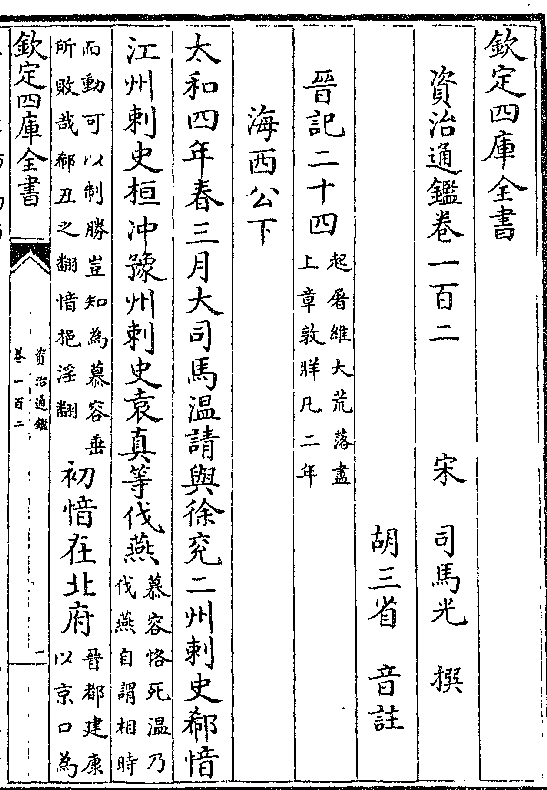 欽定四庫全書
資治通鑑卷一百二　宋　司馬光　撰
胡三省　音註
晉記二十四 起屠維大荒落盡
上章敦牂凡二年
海西公下
太和四年春三月大司馬溫請與徐兗二州刺史郗愔
江州刺史桓沖豫州刺史袁真等伐燕 慕容恪死溫乃
伐燕自謂相時
而動可以制勝豈知為慕容垂
所敗哉郗丑之翻愔挹淫翻
初愔在北府 晉都建康
以京口為
欽定四庫全書
資治通鑑
卷一百二